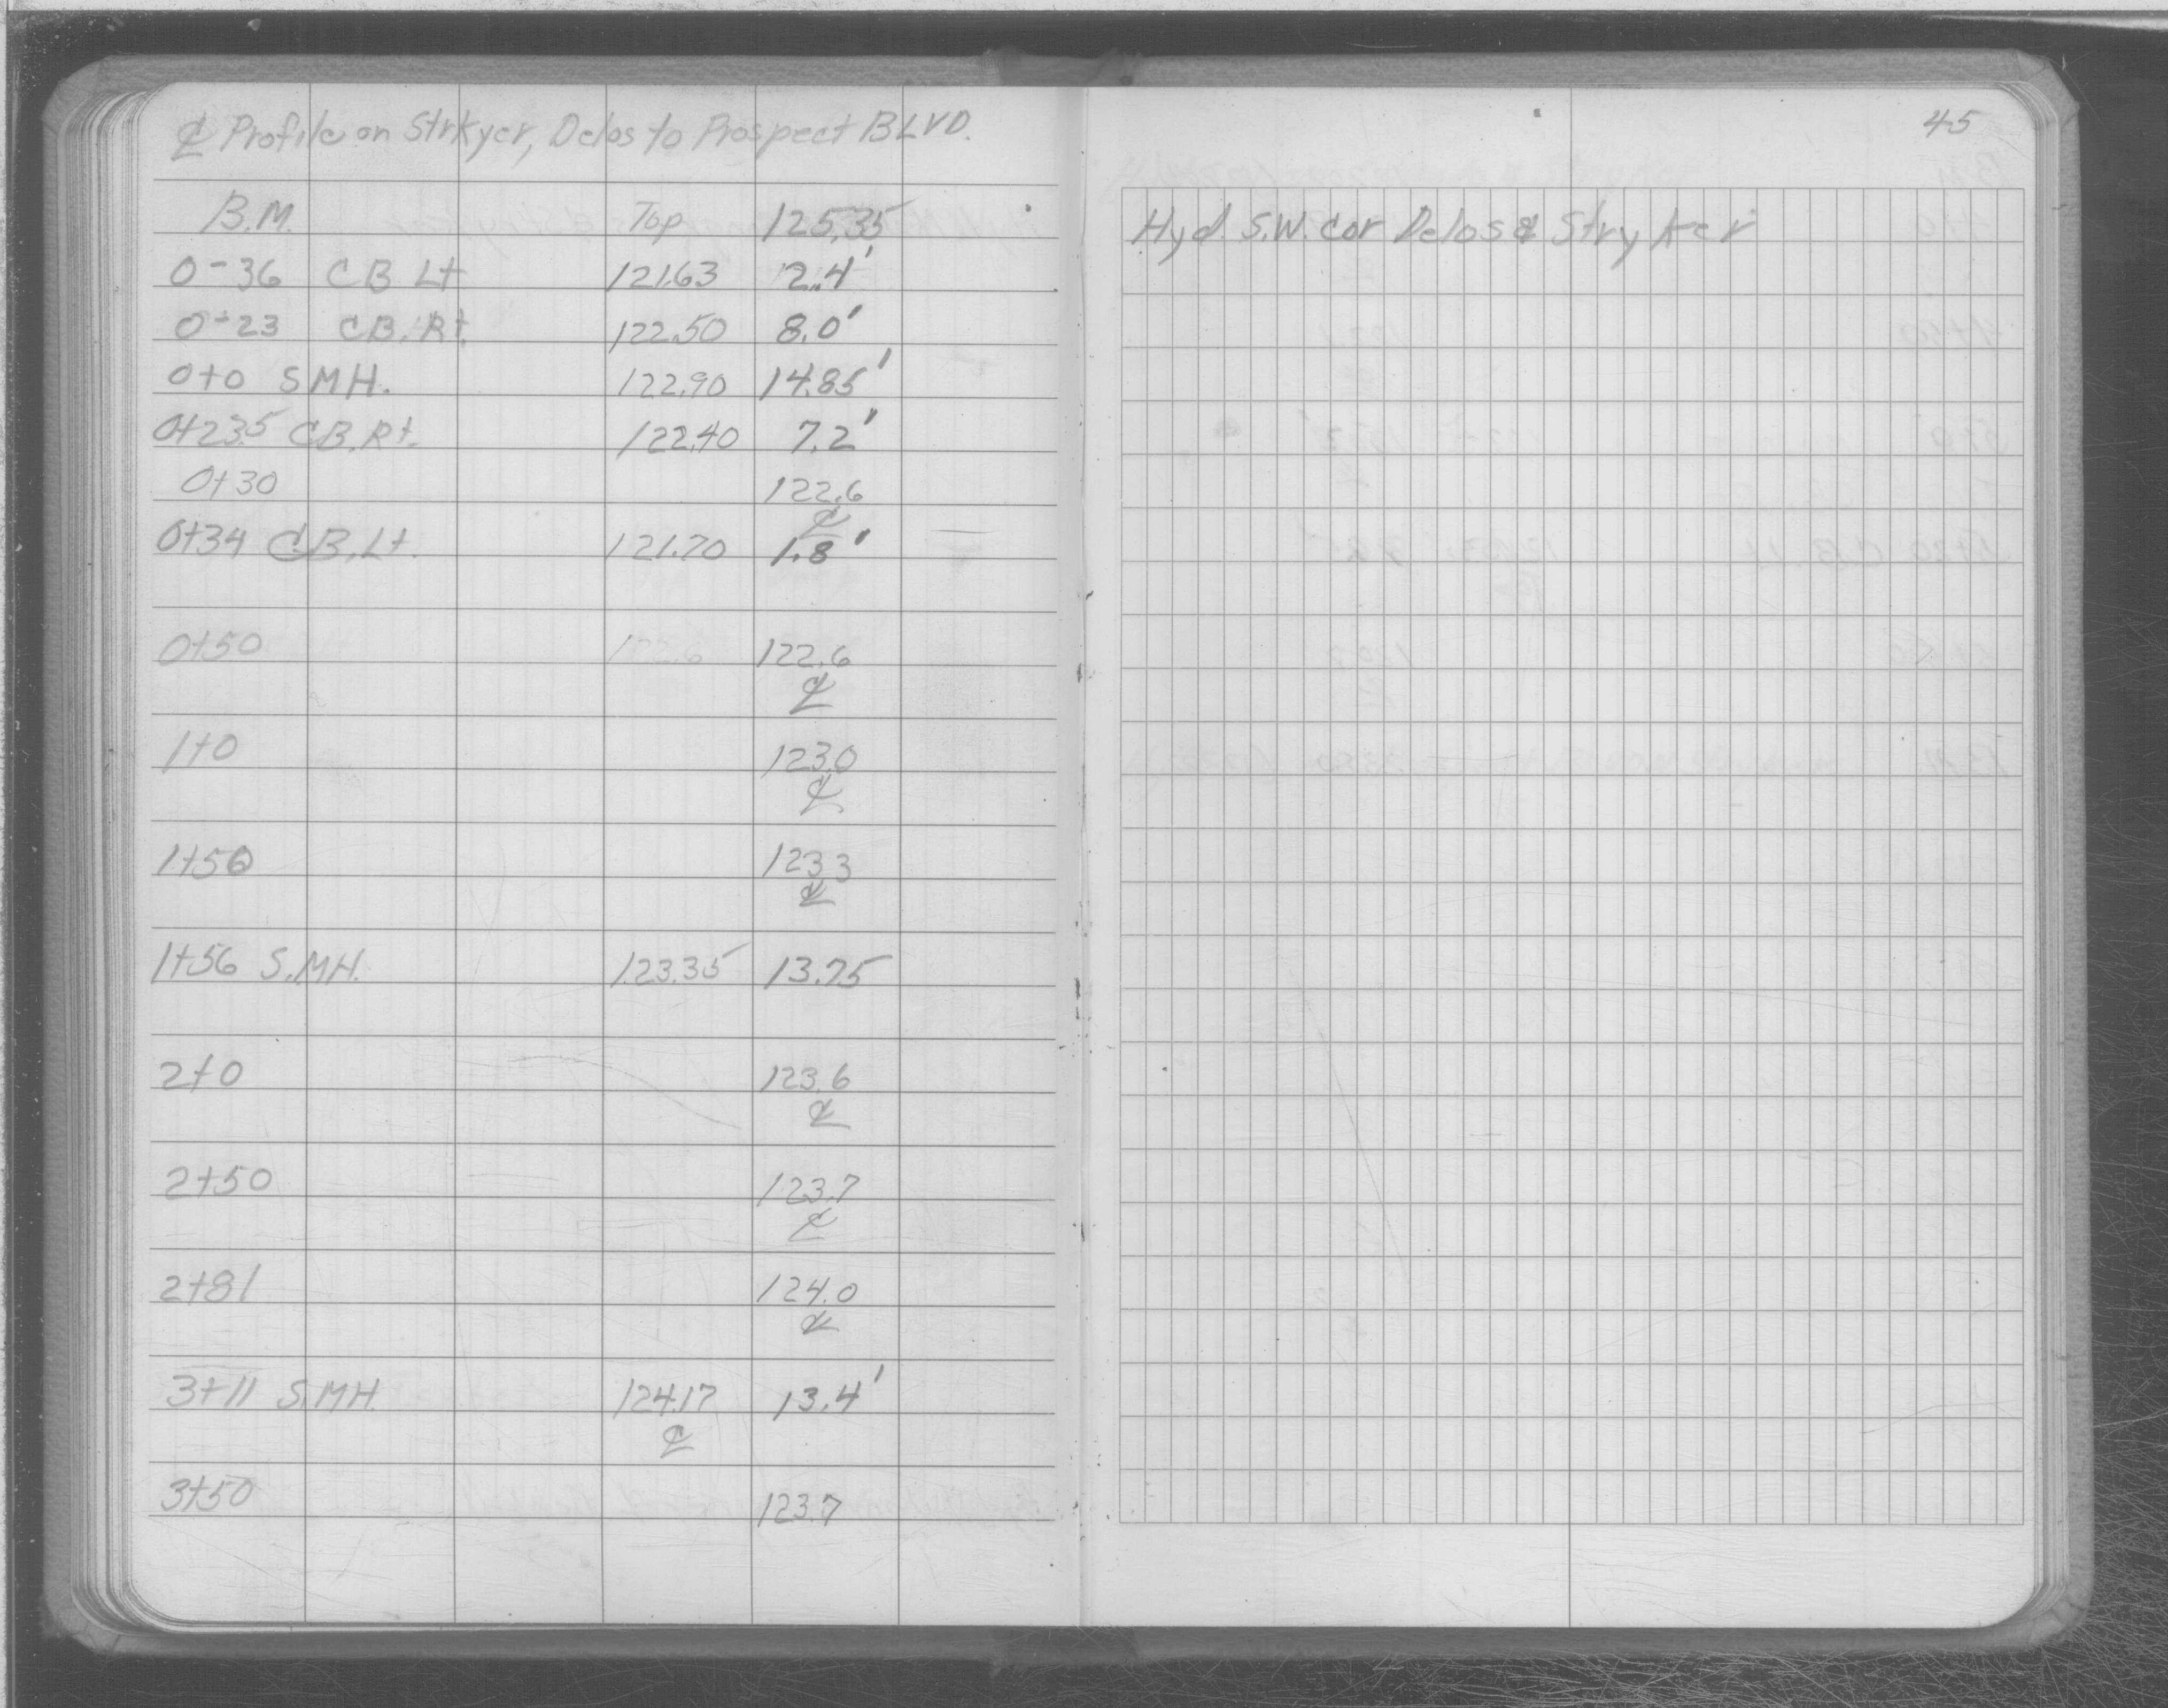 ℄ Profile on Strkyer, Delos to Prospect BLVD.
45
B.M. Top 125.35 Hyd. S.W. cor Delos & Stryker
0-36 CB Lt 121.63 2.4'
0-23 CB.Rt. 122.50 8.0'
0+0 SMH. 122.90 14.85'
0+23.5 CB.Rt. 122.40 7.2'
0+30 122.6
℄
0+34 CB.Lt. 121.70 1.8'
0+50 122.6 122.6
℄
1+0 123.0
℄
1+50 123.3
℄
1+56 S.MH. 123.35 13.75
2+0 123.6
℄
2+50 123.7
℄
2+81 124.0
℄
3+11 S.MH. 124.17 13.4'
℄
3+50 123.7